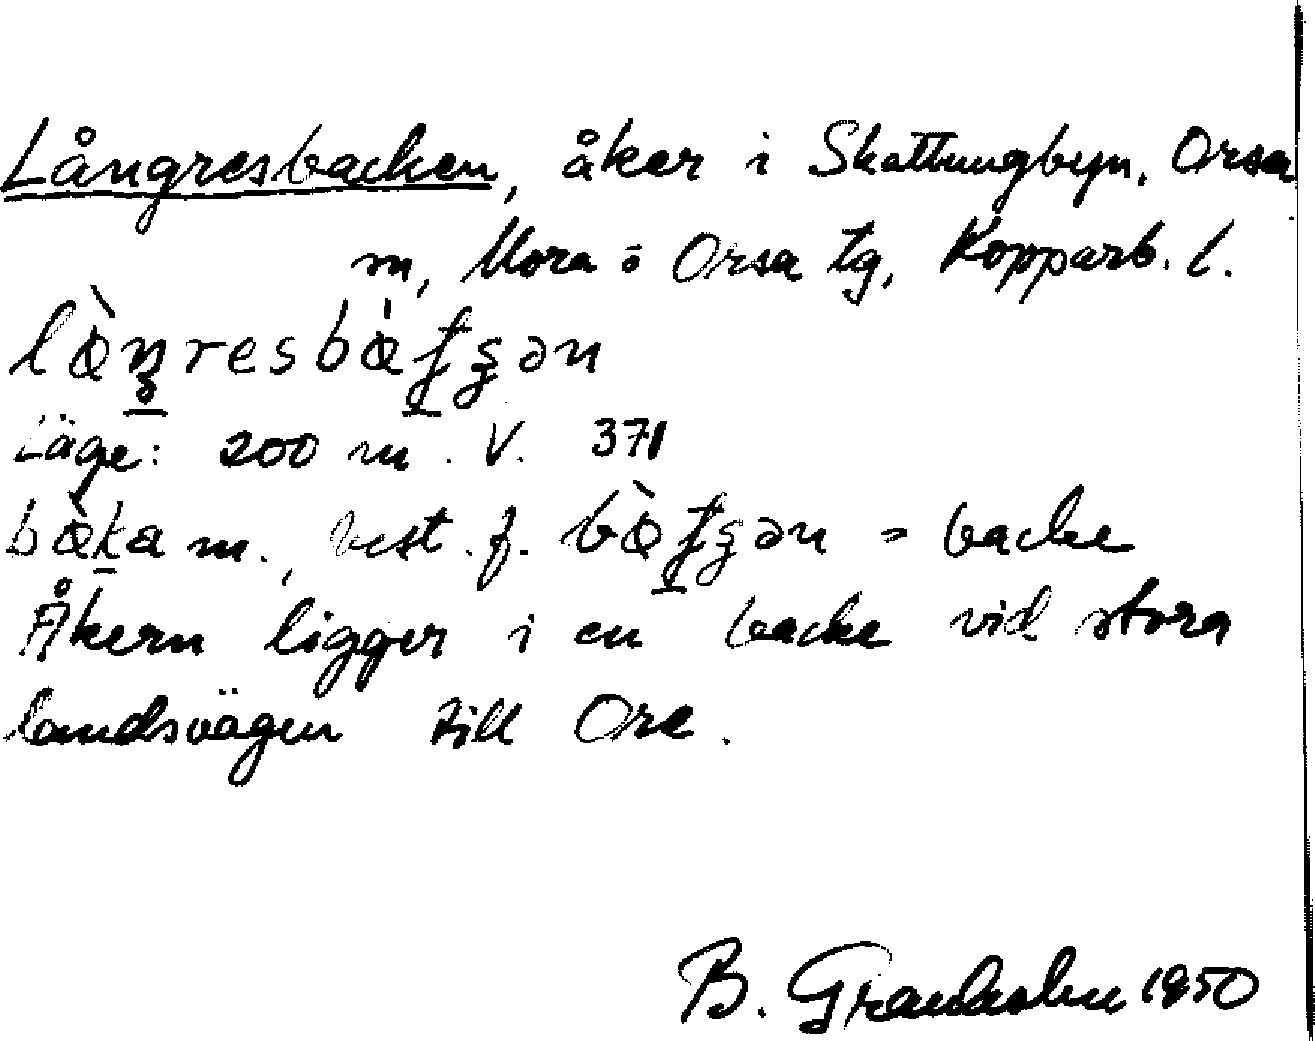 Långresbacken, åker i Skattungbyn, Orsa
m, Mora o Orsa tg, Kopparb. l.
Läge: 200 m. V. 371
m., best. f. = backe
Åkern ligger i en backe vid stora
landsvägen till Ore.
B. Granholm 1950